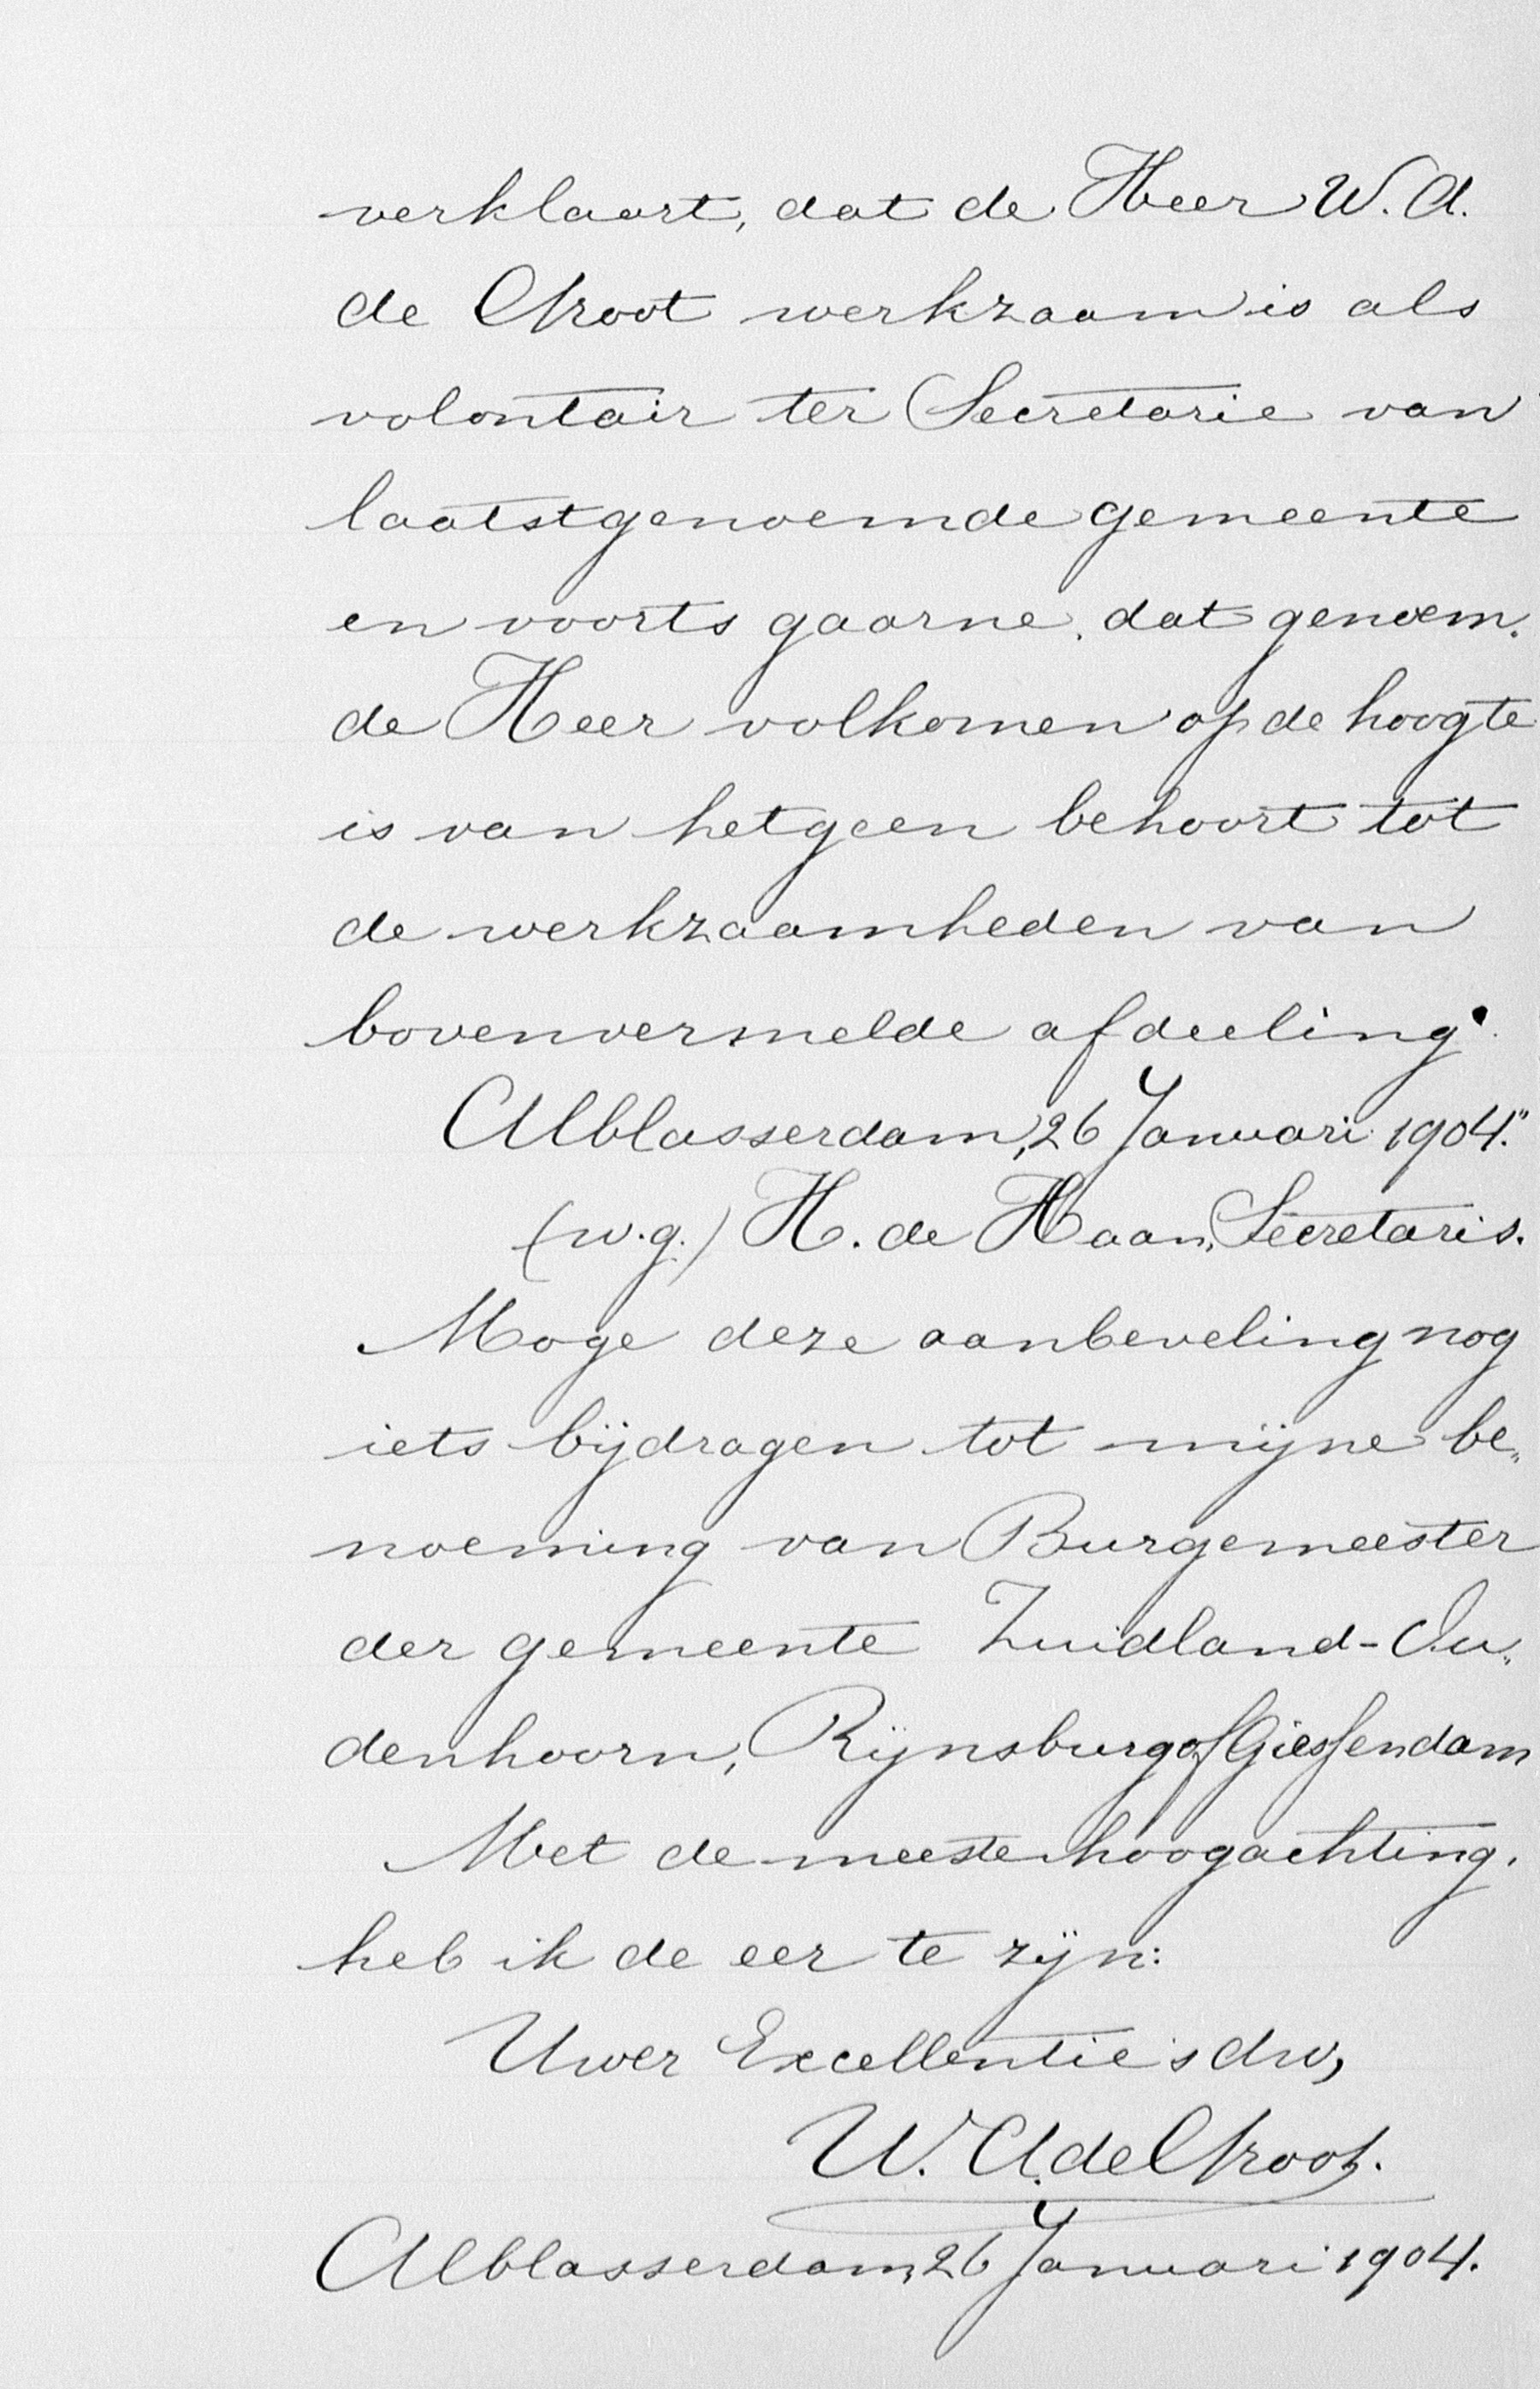 verklaart, dat de Heer W. A.
de Groot werkzaam is als
volontair ter Secretarie van
laatstgenoemde gemeente
en voorts gaarne, dat genoem„
de Heer volkomen op de hoogte
is van hetgeen behoort tot
de werkzaamheden van
bovenvermelde afdeeling.
Alblasserdam, 26 Januari 1904."
(w.g.) H. de Haan, Secretaris.
Moge deze aanbeveling nog
iets bijdragen tot mijne be„
noeming van Burgemeester
der gemeente Zuidland-Ou„
denhoorn, Rijnsburg of Giessendam
Met de meeste hoogachting.
heb ik de eer te zijn:
Uwer Excellentie's dw,
W. A. de Groot.
Alblasserdam, 26 Januari 1904.